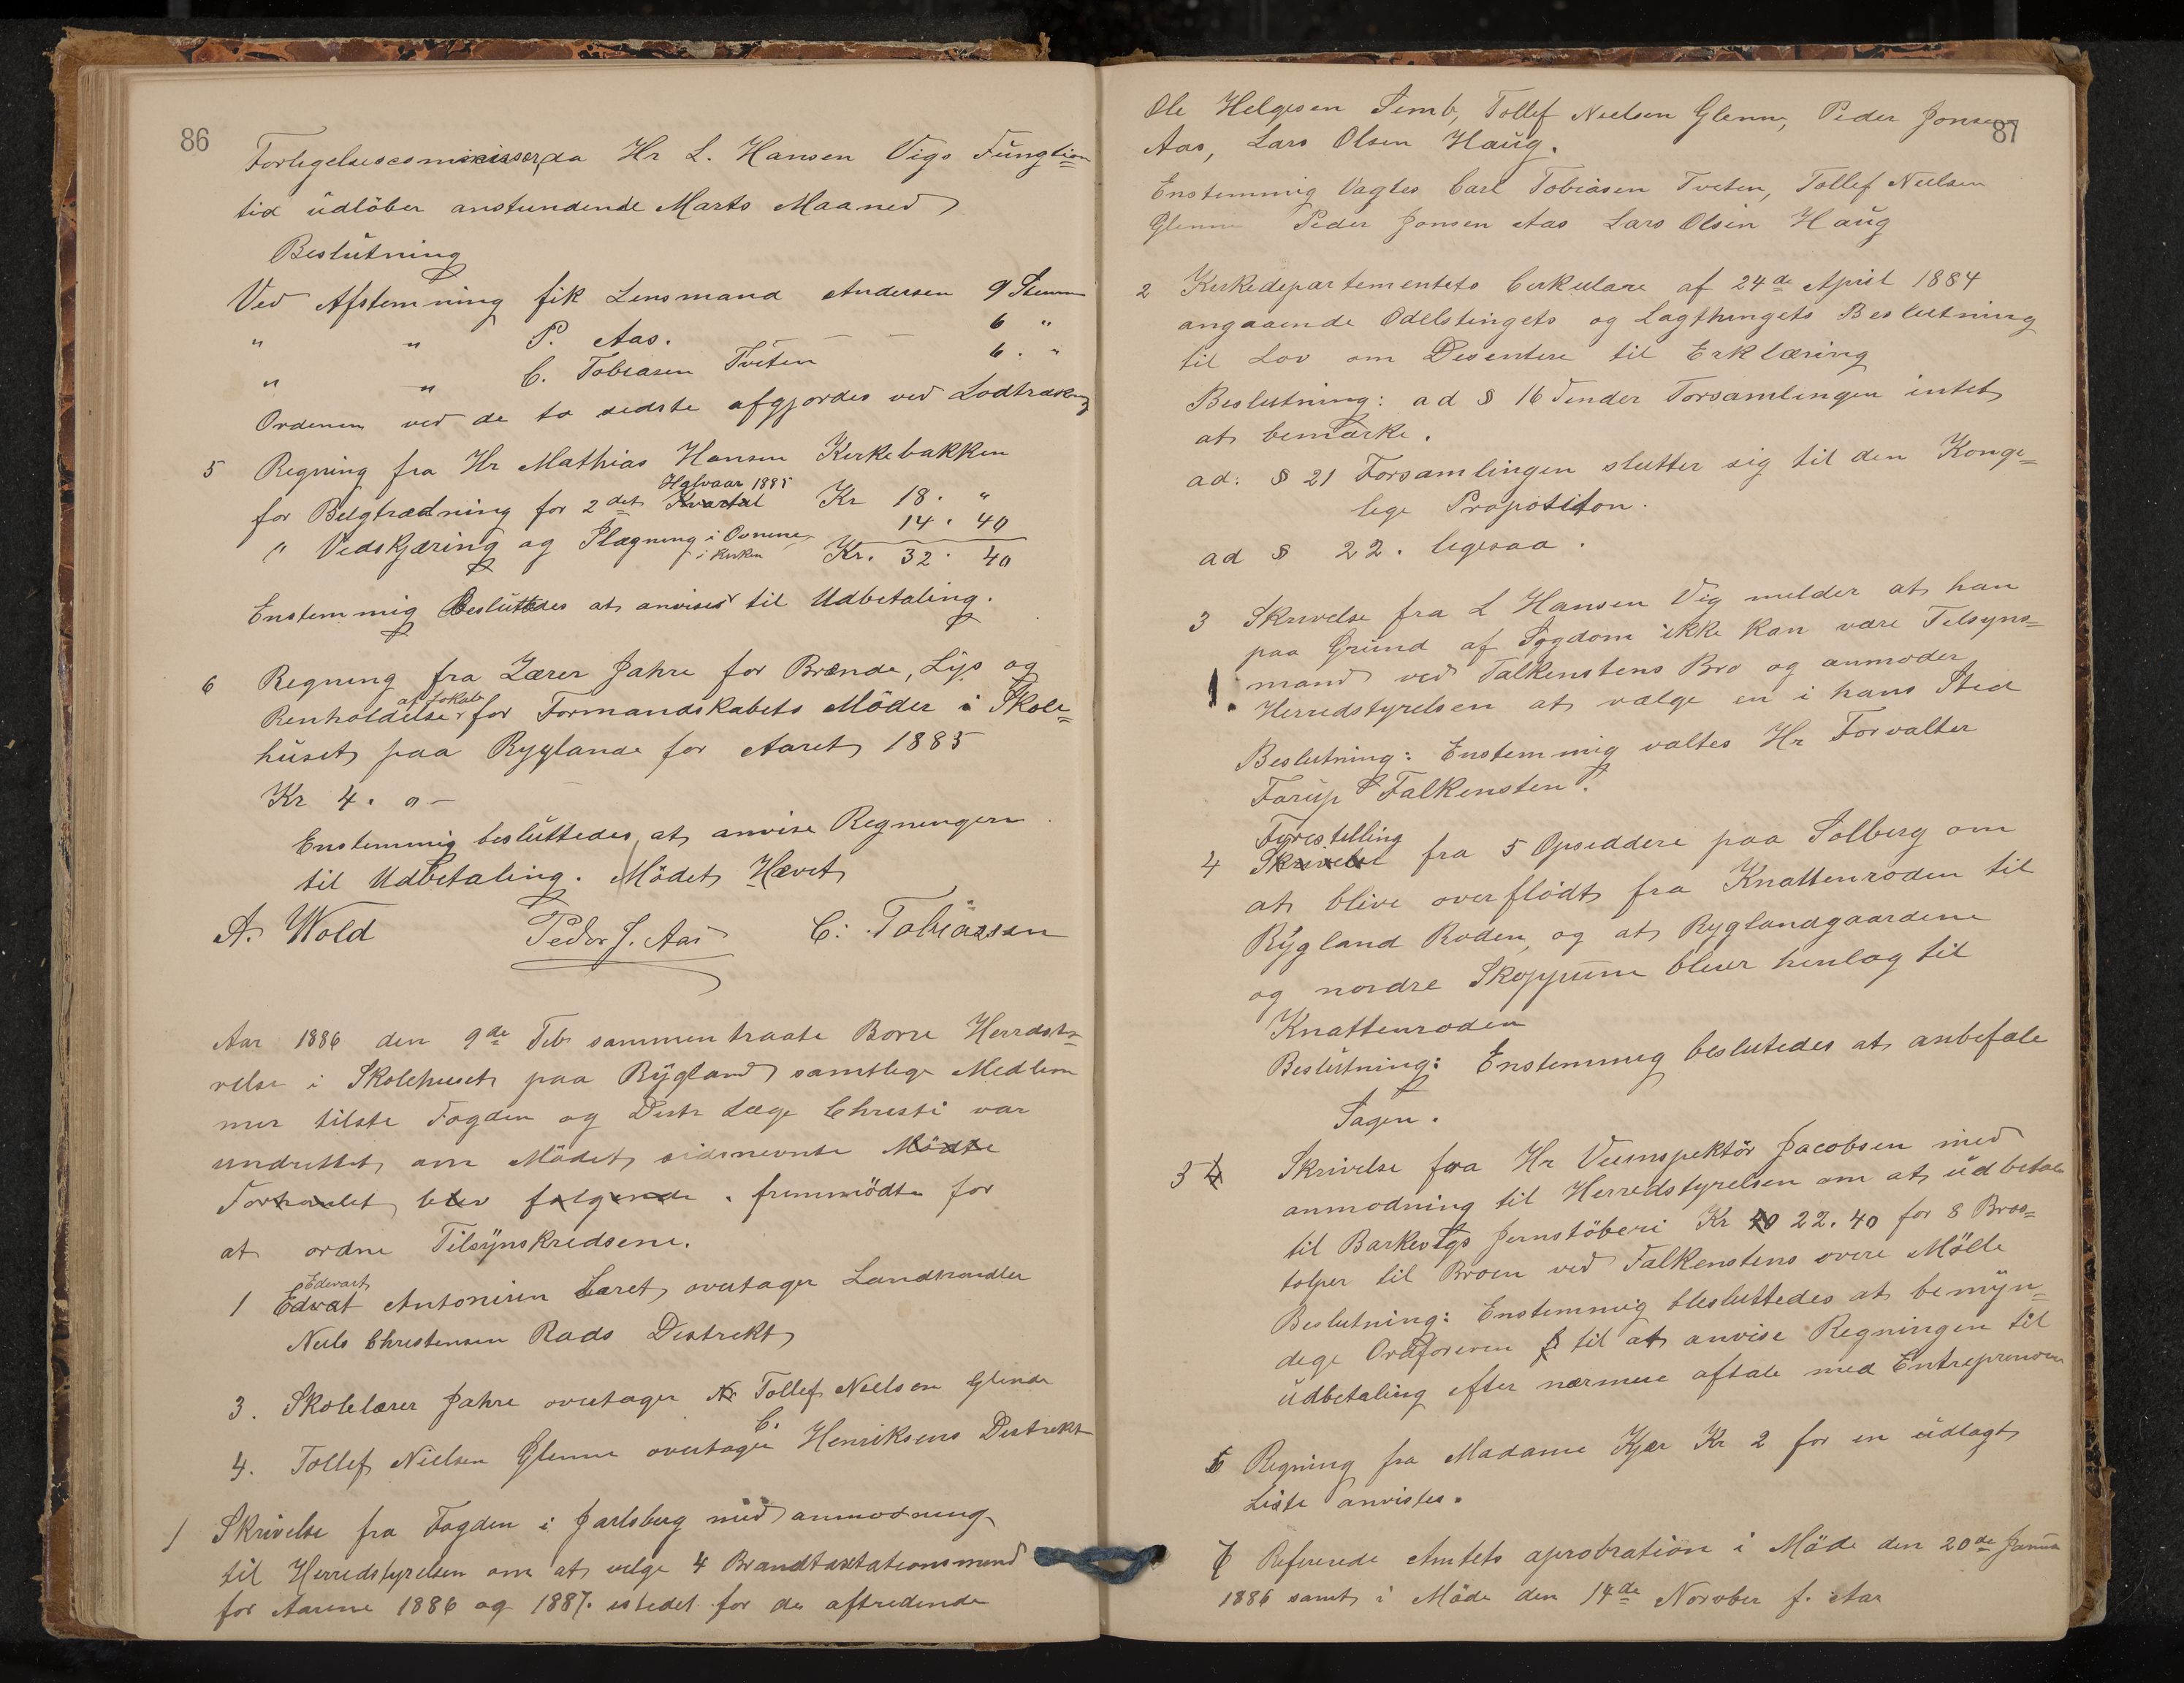 86
Forlegelsescommissær, da Hr L. Hansen Vigs Fungtions=
tid udlöber anstundende Marts Maaned
Beslutning
Ved Afstemning fik Lensmand Andersen 9 Stemmer
" " P. Aas. — — 6 "
" " C. Tobiasen Tveten 6. "
Ordenen ved de to sidste afgjordes ved Lodtrækning
5 Regning fra Hr Mathias Hansen Kirkebakken
Halvaar 1885
for Belgtrædning for 2det Kvartal Kr 18. "
" Vedskjæring og Ilægning i Ovnene 14. 40
i Kirken Kr. 32. 40
Enstemmig Besluttedes at anvises til Udbetaling.
6 Regning fra Lærer Jahre for Brænde, Lys og
af Lokale
Renholdelse for Formandskabets Möder i Skole=
huset paa Ryglande for Aaret 1885
Kr 4. o —
Enstemmig besluttedes at anvise Regningen
til Udbetaling. Mödet Hævet
A. Wold Peder J. Aas C. Tobiassen
Aar 1886 den 9de Feb sammentraate Borre Herredsty=
relse i Skolehuset paa Rygland samtlige Medlem
mer tilste Fogden og Distr Læge Christi var
undrettet om Mödet sidsnevnte Mödte
Forhanlet blev følgende. fremmödte for
at ordne Tilsynskredsene.
Edevart
1 Edvat Antonisen Laret overtager Landhandler
Neils Christensen Rads Distrekt
3. Skolelærer Jahre overtager N. Tollef Nielsen Glende
C.
4. Tollef Nielsen Glenne overtager Henriksens Distrekt
1 Skrivelse fra Fogden i Jarlsberg med anmodning
til Herredstyrelsen om at velge 4 Brandtaxtationsmend
for Aarene 1886 og 1887. istedet for de aftredende
87
Ole Helgesen Semb, Tollef Neelsen Glenne, Peder Jonsen
Aas, Lars Olsen Haug.
Enstemmig Vagtes Carl Tobiasen Tveten, Tollef Neelsen
Glenne Peder Jonsen Aas Lars Olsen Haug
2 Kirkedepartementets Cirkulære af 24de April 1884
angaaende Odelstingets og Lagthingets Beslutning
til Lov om Desentere til Erklæring
Beslutning: ad § 16 Finder Forsamlingen intet
at bemærke.
ad: § 21 Forsamlingen slutter sig til den Konge=
lige Propositon.
ad § 22. legesaa.
3 Skrivelse fra L Hansen Vig melder at han
paa Grund af Sygdom ikke kan være Tilsyns=
mand ved Falkenstens Bro og anmoder
Herredstyrelsen at vælge en i hans Sted
Beslutning: Enstemmig valtes Hr Forvalter
Farup Falkensten.
Forestelling
4 Skrivelse fra 5 Opsiddere paa Solberg om
at blive overflødt fra Knattenroden til
Rygland Roden, og at Ryglandgaardene
og nordre Skoppum bliver henlag til
Knattenroden
Beslutning: Enstemmig beslutedes at anbefale
Sagen.
5 4 Skrivelse fra Hr Veiinspektör Jacobsen med
anmodning til Herredstyrelsen om at udbetale
til Barkevigs Jernstöberi Kr 40 22.40 for 8 Bros=
tolper til Broen ved Falkenstens övere Mölle
Beslutning: Enstemmig blesluttedes at bemyn=
dege Ordforeren til at anvise Regningen til
udbetaling efter nærmere aftale med Entreprenören
6 Regning fra Madame Kjær Kr 2 for en udlagt
Liste anvistes.
7 Refererede Amtets aprobration i Möde den 20de Januar
1886 samt i Möde den 14de Novber f. Aar